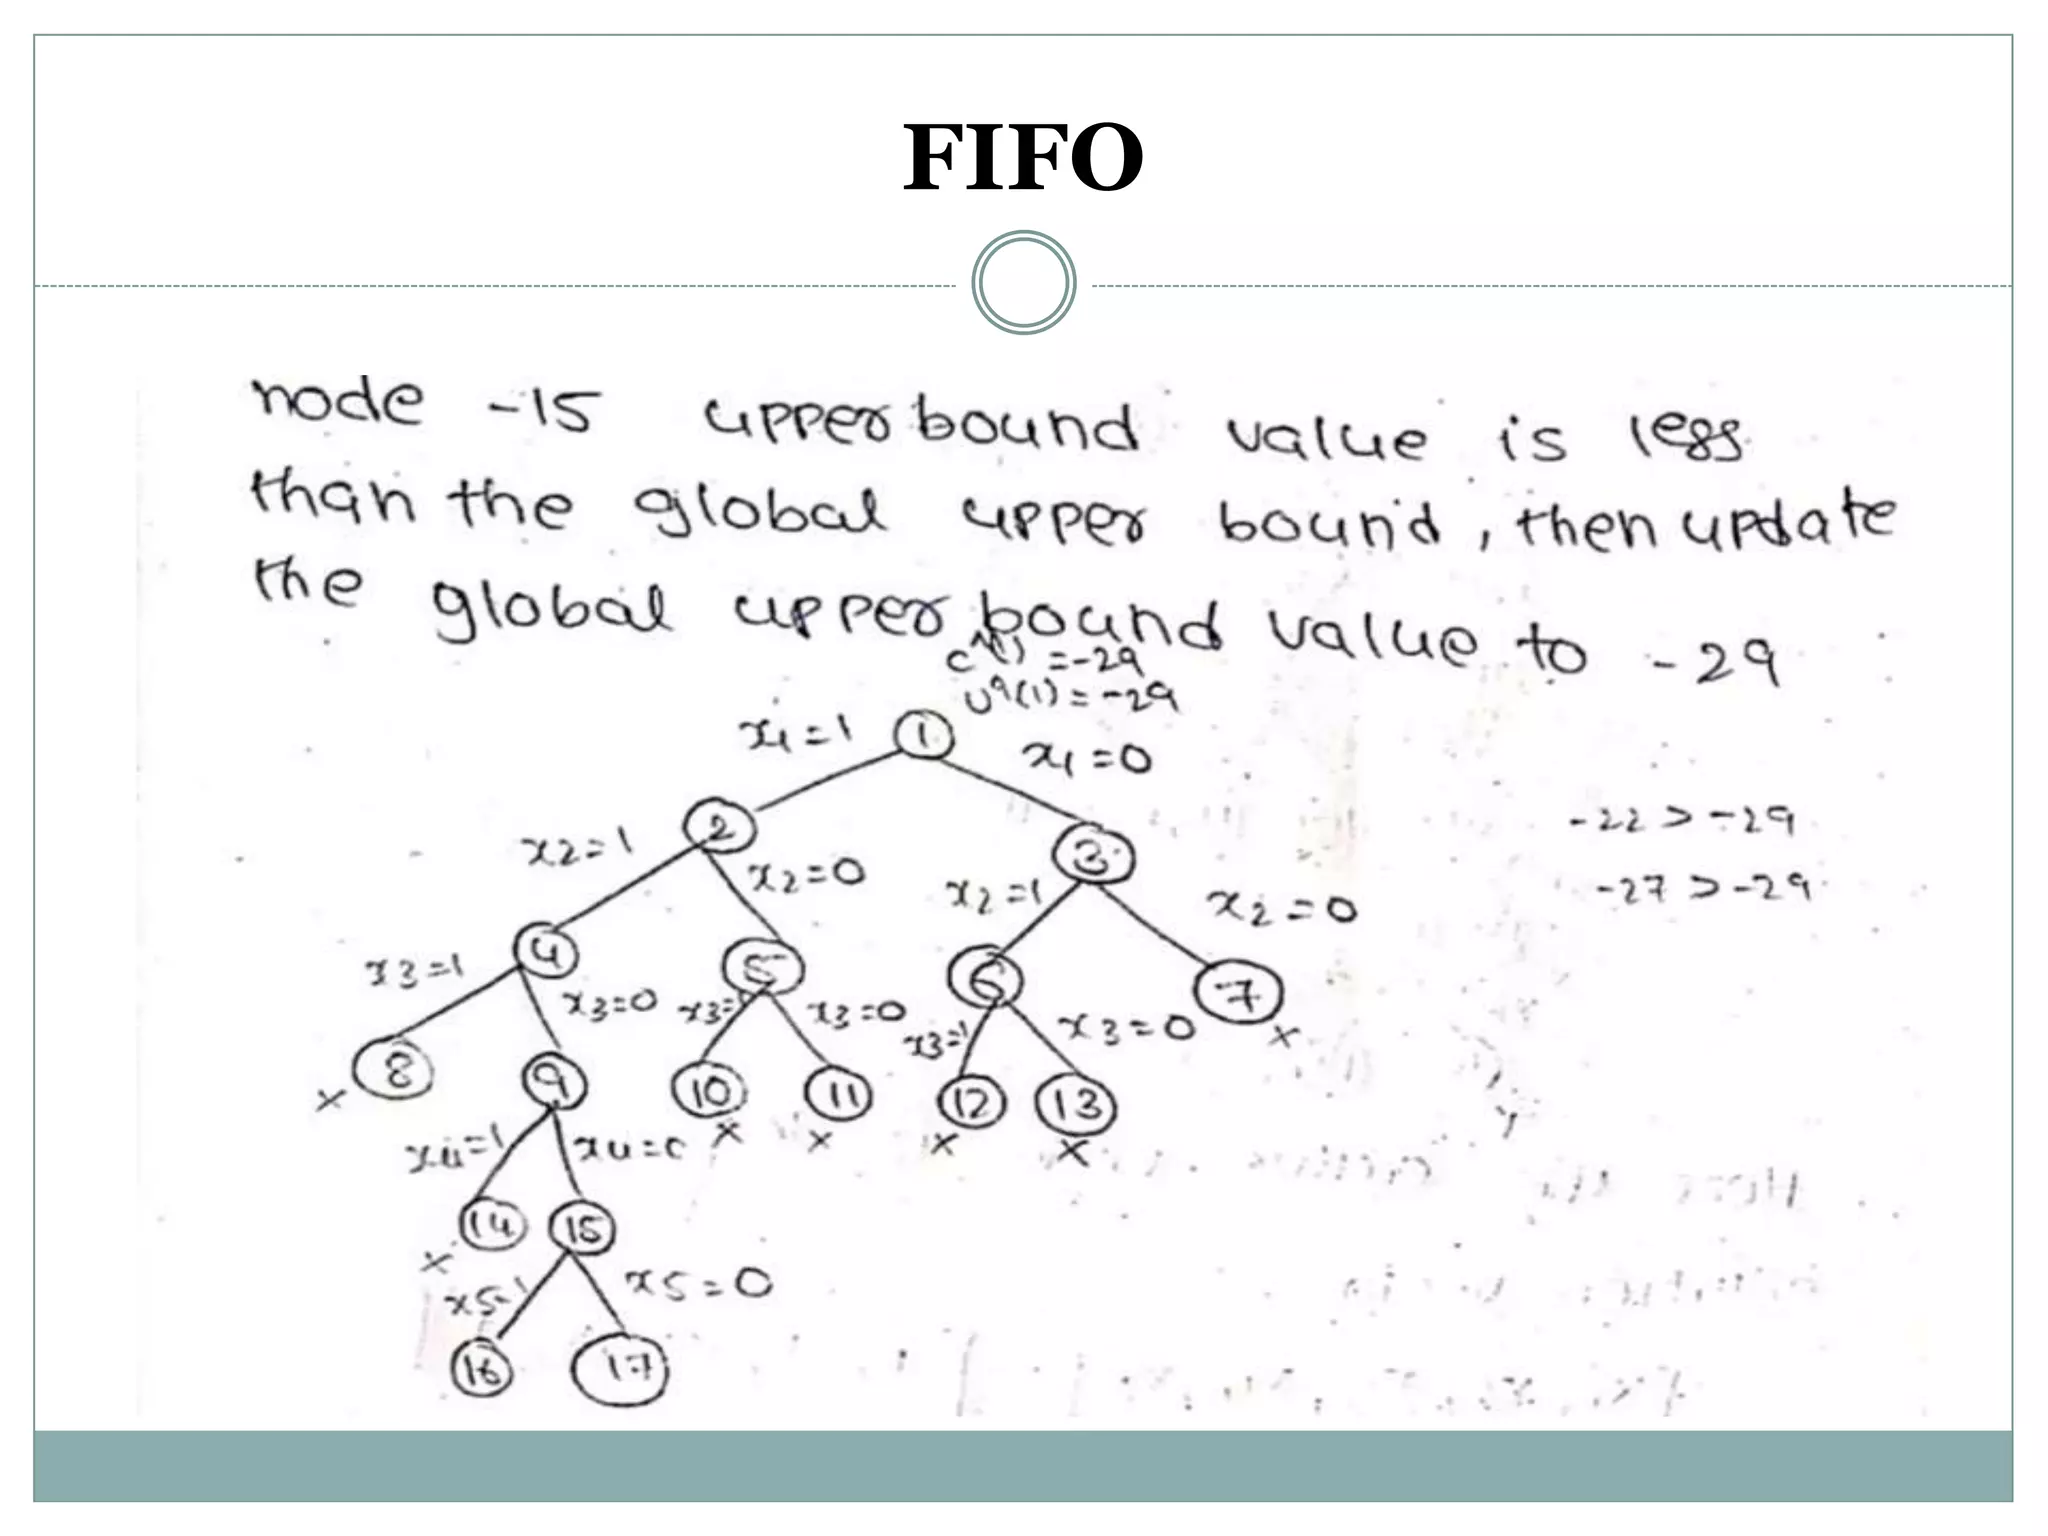 FIFO
node -15 upper bound value is less
than the global upper bound, then update
the global upper bound value to -29
c^(1) = -29
u^(1) = -29
x1=1
1
x1=0
-22 > -29
x2=1
2
x2=0
3
x2=1
x2=0
-27 > -29
x3=1
4
x3=0
5
x3=1
x3=0
6
x3=1
x3=0
7
x
8
x
9
10
x
11
x
12
x
13
x
x4=1
x4=0
14
x
15
x5=1
x5=0
16
17